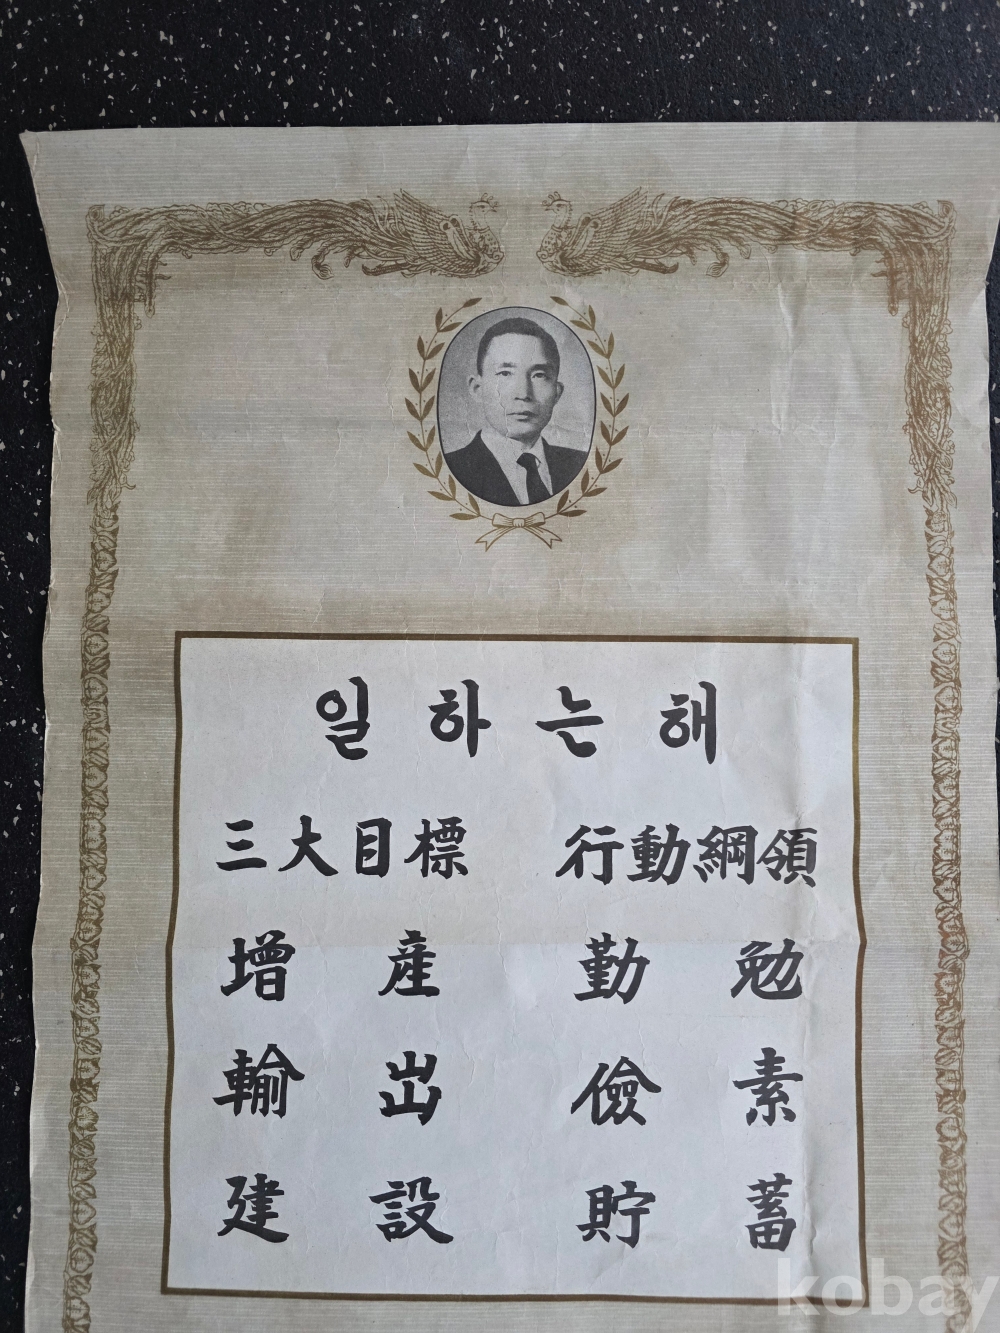 일하는해
三大目標 行動綱領
增産 勤勉
輸出 儉素
建設 貯蓄
kobay